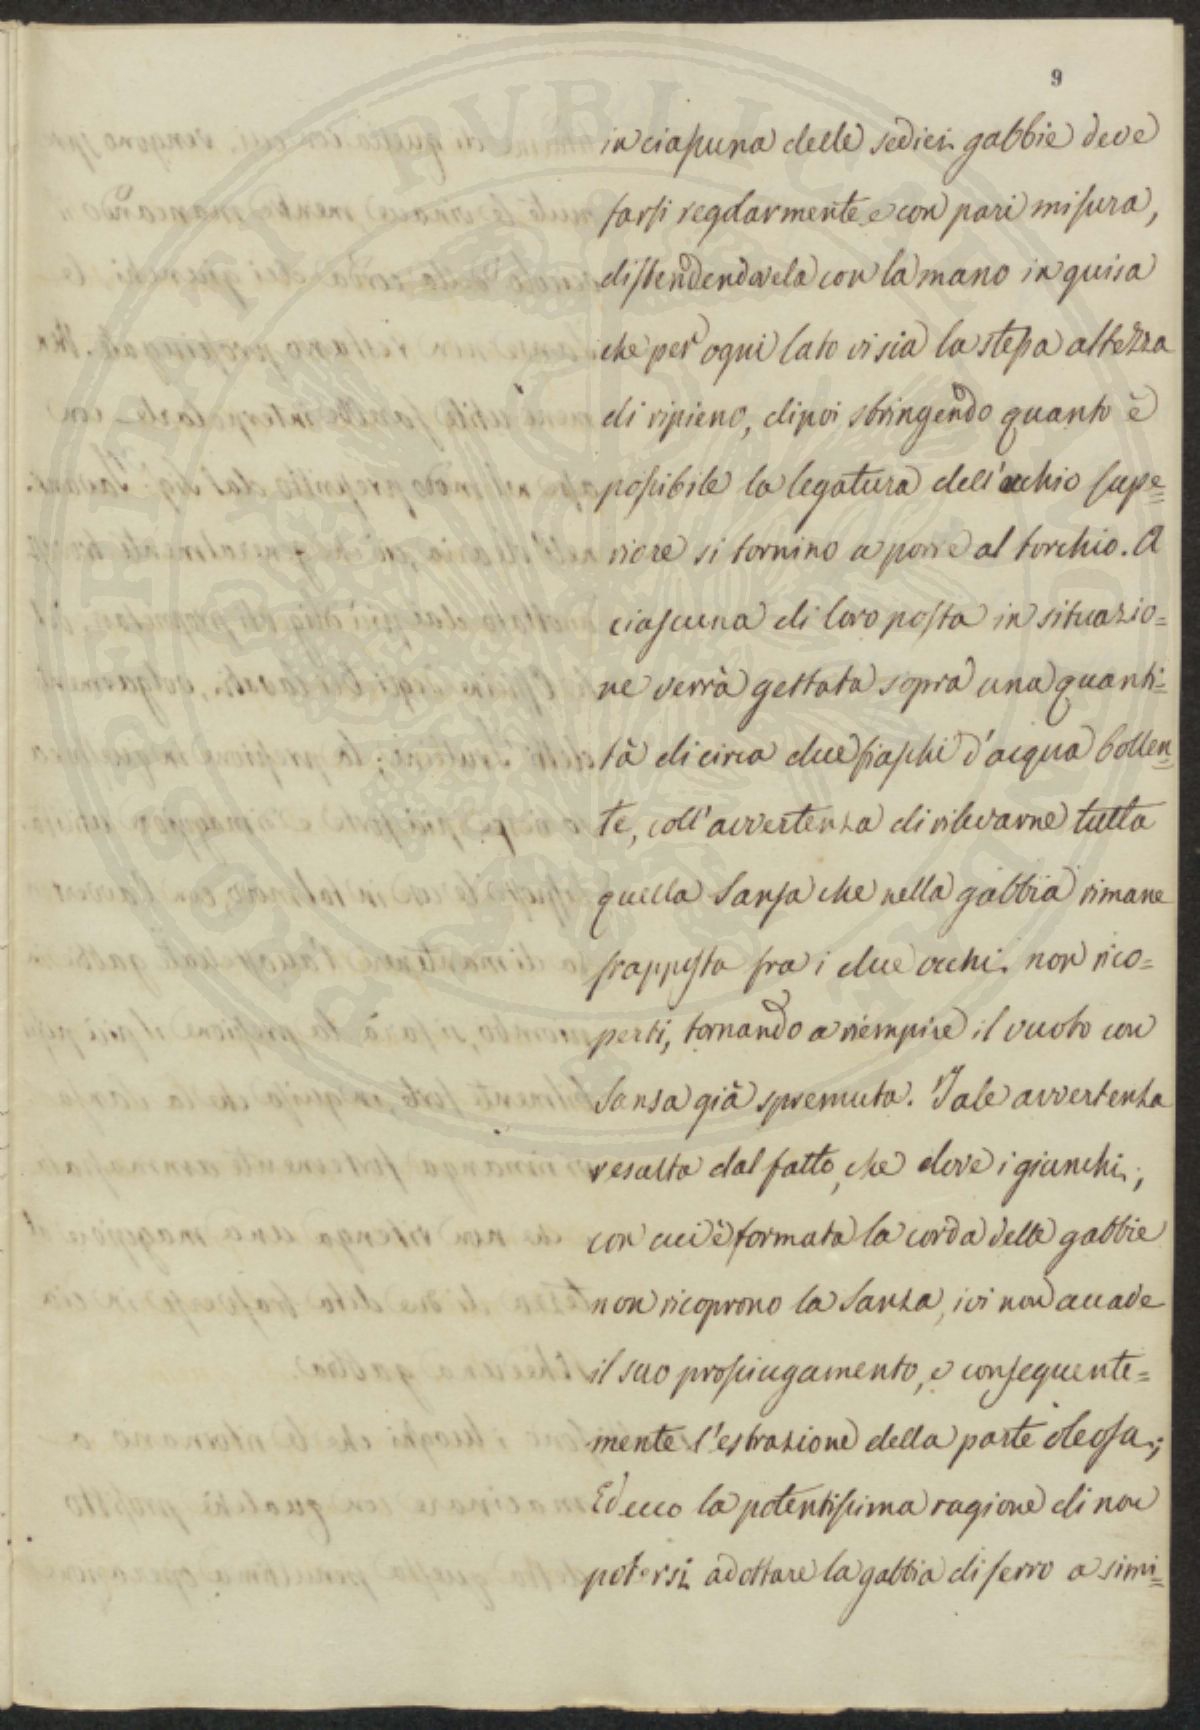 9
in ciascuna delle sedici gabbie deve
farsi regolarmente e con pari misura,
distendendovela con la mano in guisa
che per ogni lato vi sia la stessa altezza
di ripieno, dipoi stringendo quanto è
possibile la legatura dell'occhio supe=
riore si tornino a porre al torchio. A
ciascuna di loro posta in situazio=
ne verrà gettata sopra una quanti=
tà di circa due fiaschi d'acqua bollen=
te, coll'avvertenza di rilevarne tutta
quella Sansa che nella gabbia rimane
frapposta fra i due occhi non rico=
perti, tornando a riempire il vuoto con
Sansa già spremuta. Tale avvertenza
resulta dal fatto, che dove i giunchi,
con cui è formata la corda delle gabbie
non ricoprono la Sansa, ivi non accade
il suo prosciugamento, e conseguente=
mente l'estrazione della parte oleosa;
Ed ecco la potentissima ragione di non
potersi adottare la gabbia di ferro a simi=